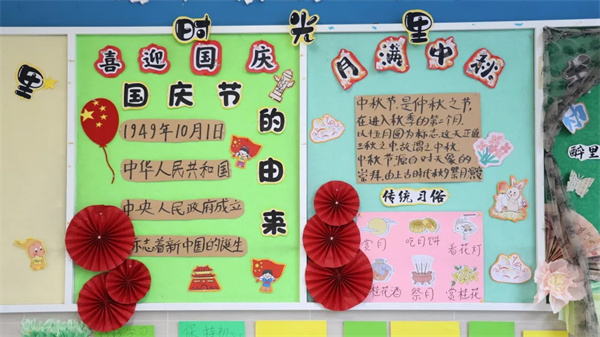 时光里
里
喜迎国庆
国庆节的由来
1949年10月1日
中华人民共和国
中央人民政府成立
标志着新中国的诞生
月满中秋
中秋节是仲秋之节
在进入秋季的第二个月
以十五月圆为标志,这天正值
三秋之中,故谓之中秋.
中秋节源自对天象的
崇拜,由上古时代秋夕祭月
传统习俗
赏月
吃月饼
看花灯
桂花酒
祭月
赏桂花
醉里